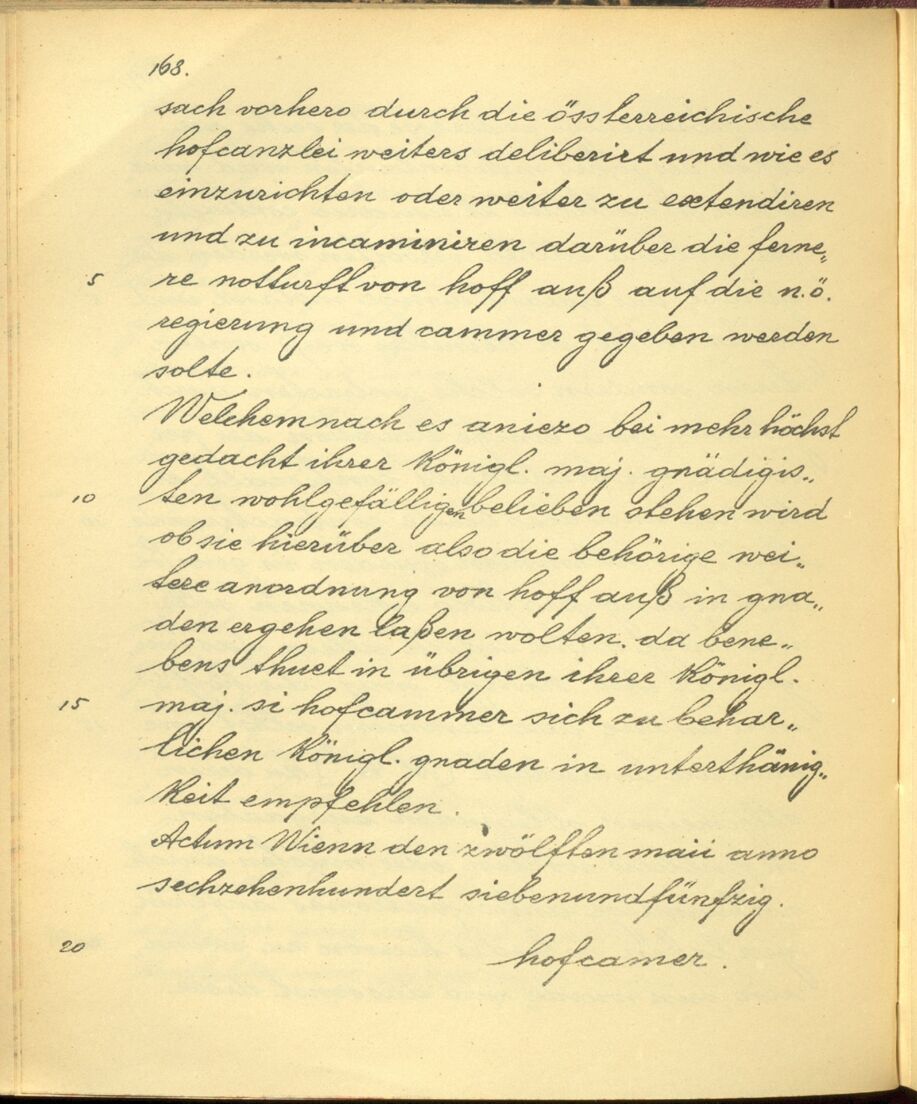 168.
sach vorhero durch die össterreichische
hofcanzlei weiters deliberirt und wie es
einzurichten oder weiter zu extendiren
und zu incaminiren darüber die ferne„
5 re notturft von hoff auß auf die n.ö.
regierung und cammer gegeben werden
solte.
Welchemnach es aniezo bei mehr höchst
gedacht ihrer Königl. maj. gnädigis„
10 ten wohlgefälligen belieben stehen wird
ob sie hierüber also die behörige wei„
tere anordnung von hoff auß in gna„
den ergehen laßen wolten. da bene„
bens thuet in übrigen ihrer Königl.
15 maj. si hofcammer sich zu behar„
lichen Königl. gnaden in unterthänig„
Keit empfehlen.
Actum Wienn den zwölften maii anno
sechzehenhundert siebenundfünfzig.
20 hofcamer.